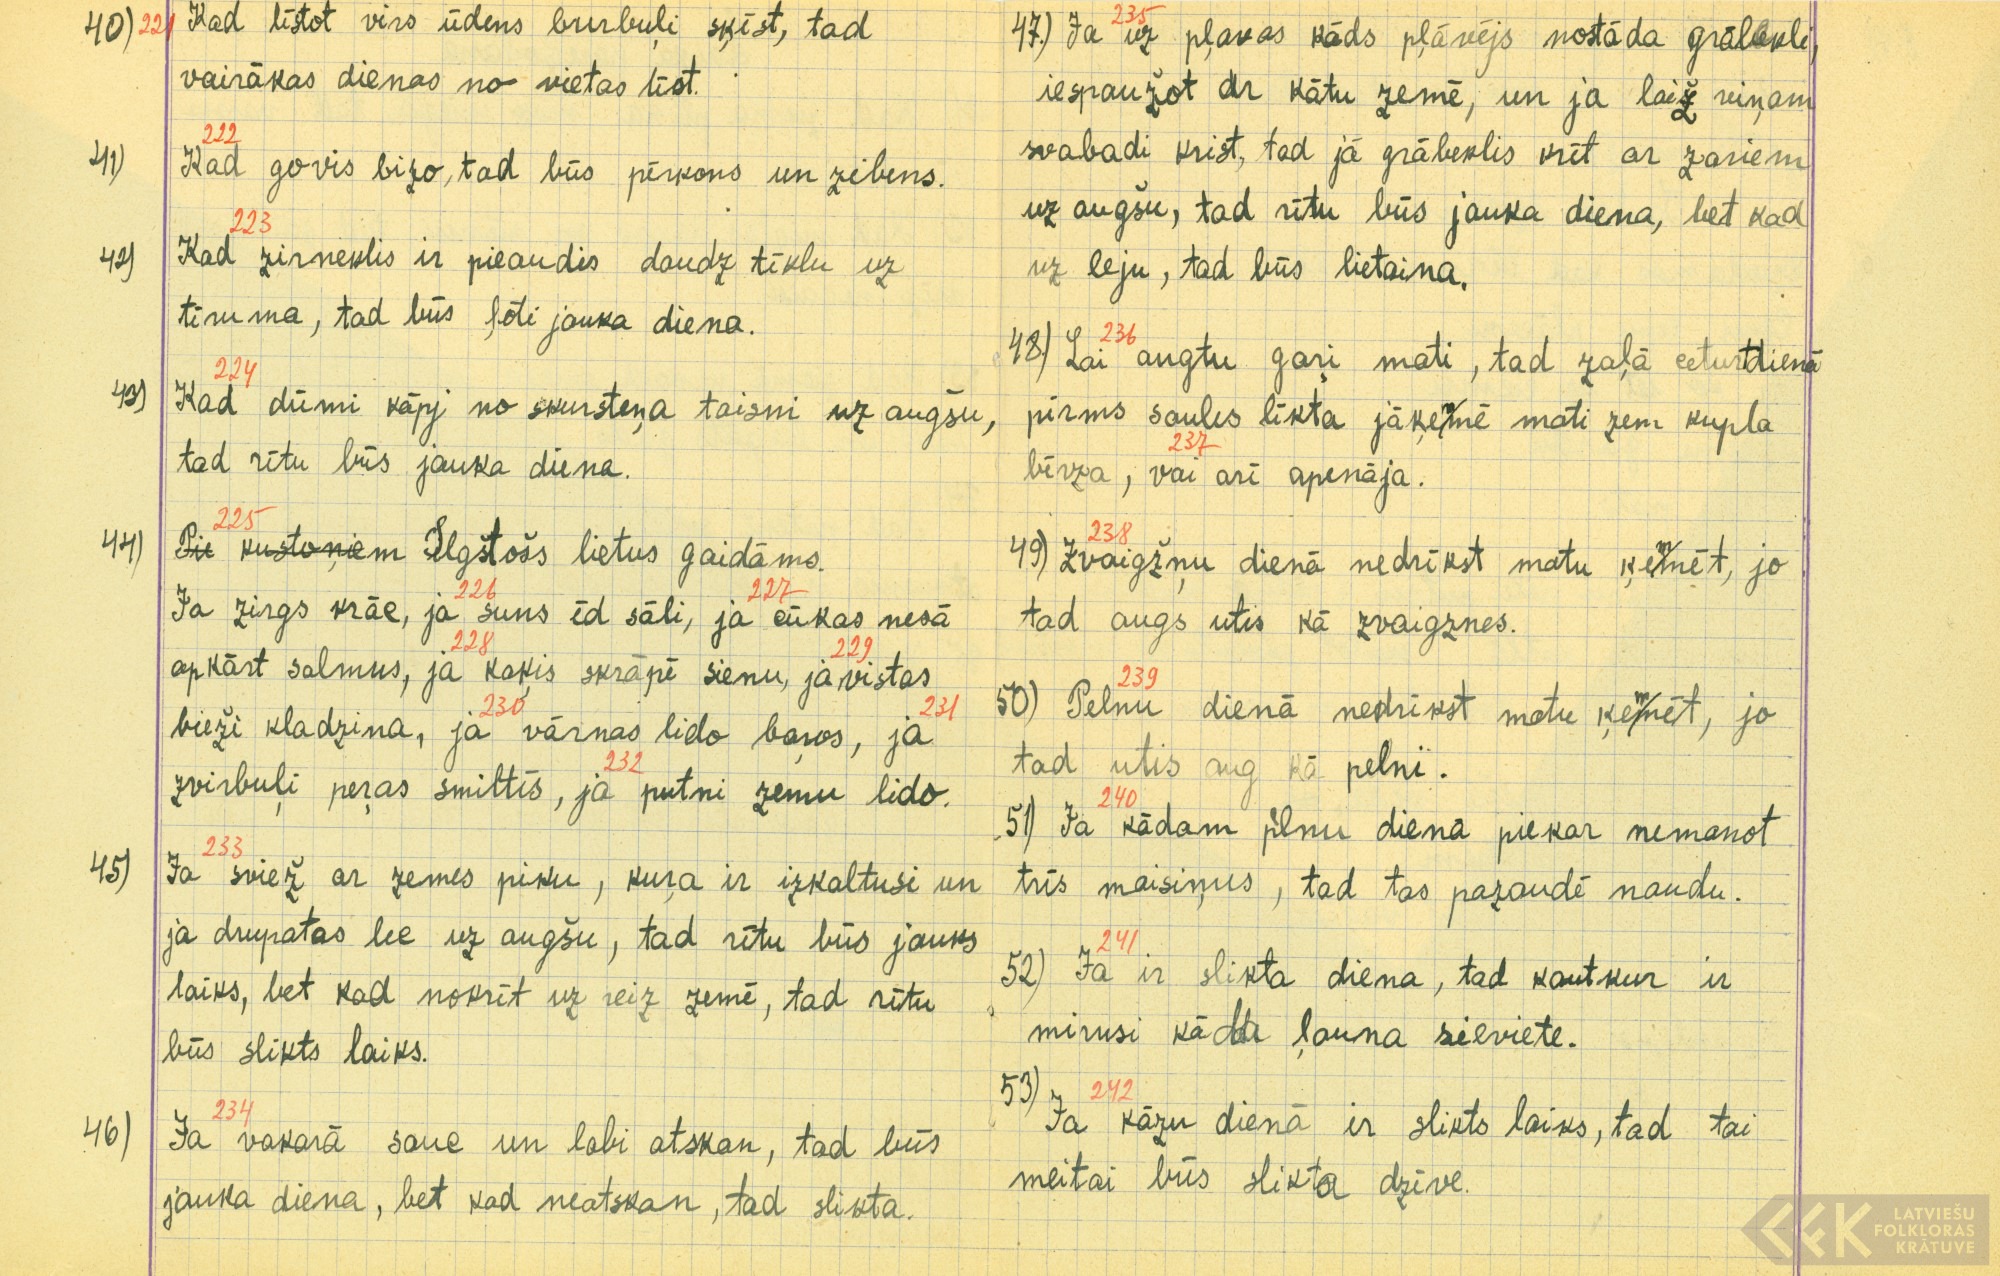 40) 221 Kad līstot virs ūdens burbuļi šķīst, tad
vairākas dienas no vietas līst.
222
41) Kad govis bizo, tad būs pērkons un zibens.
223
42) Kad zirneklis ir pieaudis daudz tīklu uz
tīruma, tad būs ļoti jauka diena.
224
43) Kad dūmi kāpj no skursteņa taisni uz augšu,
tad rītu būs jauka diena.
225
44) Pie kustoņiem Ilgstošs lietus gaidāms.
226 227
Ja zirgs krāc, ja suns ēd sāli, ja cūkas nesā
228 229
apkārt salmus, ja kaķis skrāpē sienu, ja vistas
230 231
bieži kladzina, ja vārnas lido baros, ja
232
zvirbuļi peŗas smiltīs, ja putni zemu lido.
233
45) Ja sviež ar zemes piku, kuŗa ir izkaltusi un
ja drupatas lec uz augšu, tad rītu būs jauks
laiks, bet kad nokrīt uz reiz zemē, tad rītu
būs slikts laiks.
234
46) Ja vakarā sauc un labi atskan, tad būs
jauka diena, bet kad neatskan, tad slikta.
235
47.) Ja uz pļavas kāds pļāvējs nostāda grābekli,
iespaužot ar kātu zemē, un ja laiž viņam
svabadi krist, tad jā grābeklis krīt ar zariem
uz augšu, tad rītu būs jauka diena, bet kad
uz leju, tad būs lietaina.
236
48) Lai augtu gaŗi mati, tad zaļā ceturtdienā
pirms saules lēkta jāķemmē mati zem kupla
237
bērza, vai arī apenāja.
238
49) Zvaigžņu dienā nedrīkst matu ķemmēt, jo
tad augs utis kā zvaigznes.
239
50) Pelnu dienā nedrīkst matu ķemmēt, jo
tad utis aug kā pelni.
240
51) Ja kādam pelnu dienā piekar nemanot
trīs maisiņus, tad tas pazaudē naudu.
241
52) Ja ir slikta diena, tad kautkur ir
mirusi kāda ļauna sieviete.
242
53) Ja kāzu dienā ir slikts laiks, tad tai
meitai būs slikta dzīve.
LATVIEŠU
FOLKLORAS
KRĀTUVE